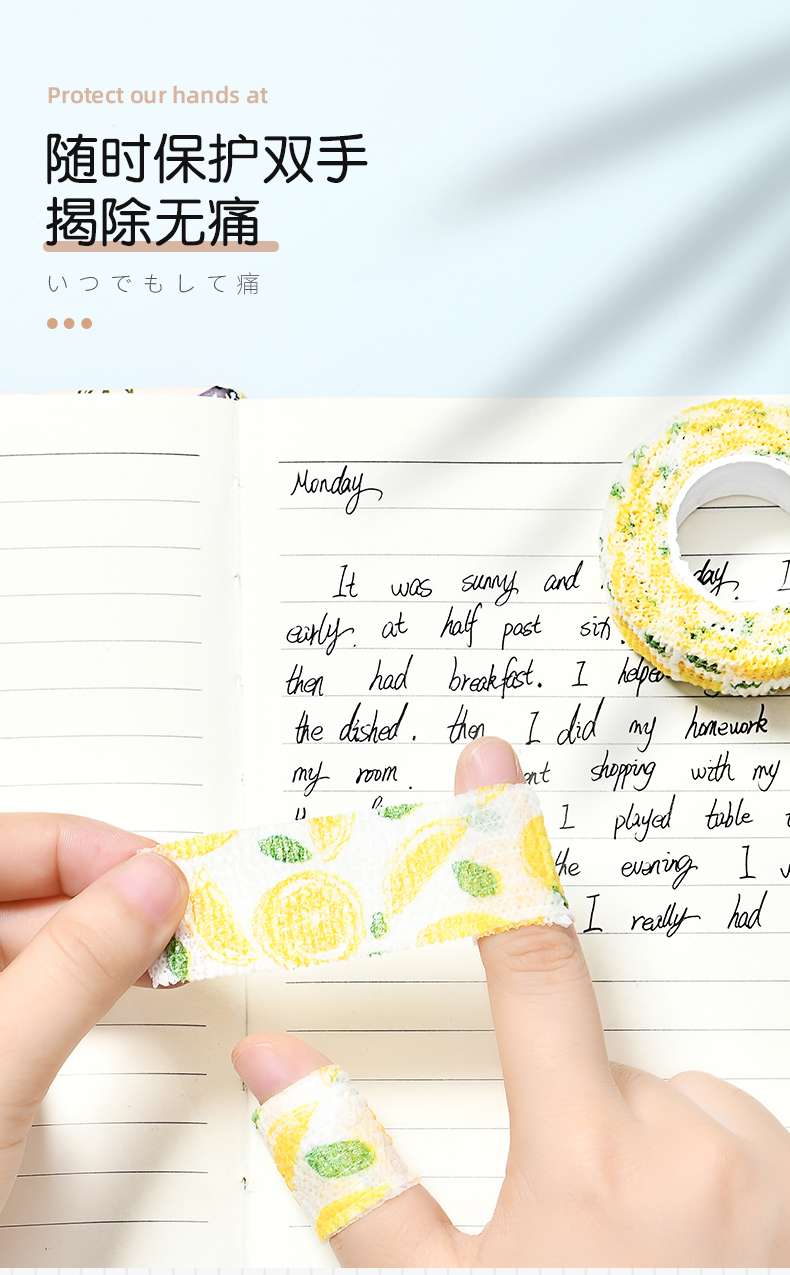 Protect our hands at
随时保护双手
揭除无痛
いつでもして痛
Monday
It was sunny and day. I
early. at half past six.
then had breakfast. I helped
the dished. then I did my homework
my room. shopping with my
I played table
the evening I
I really had